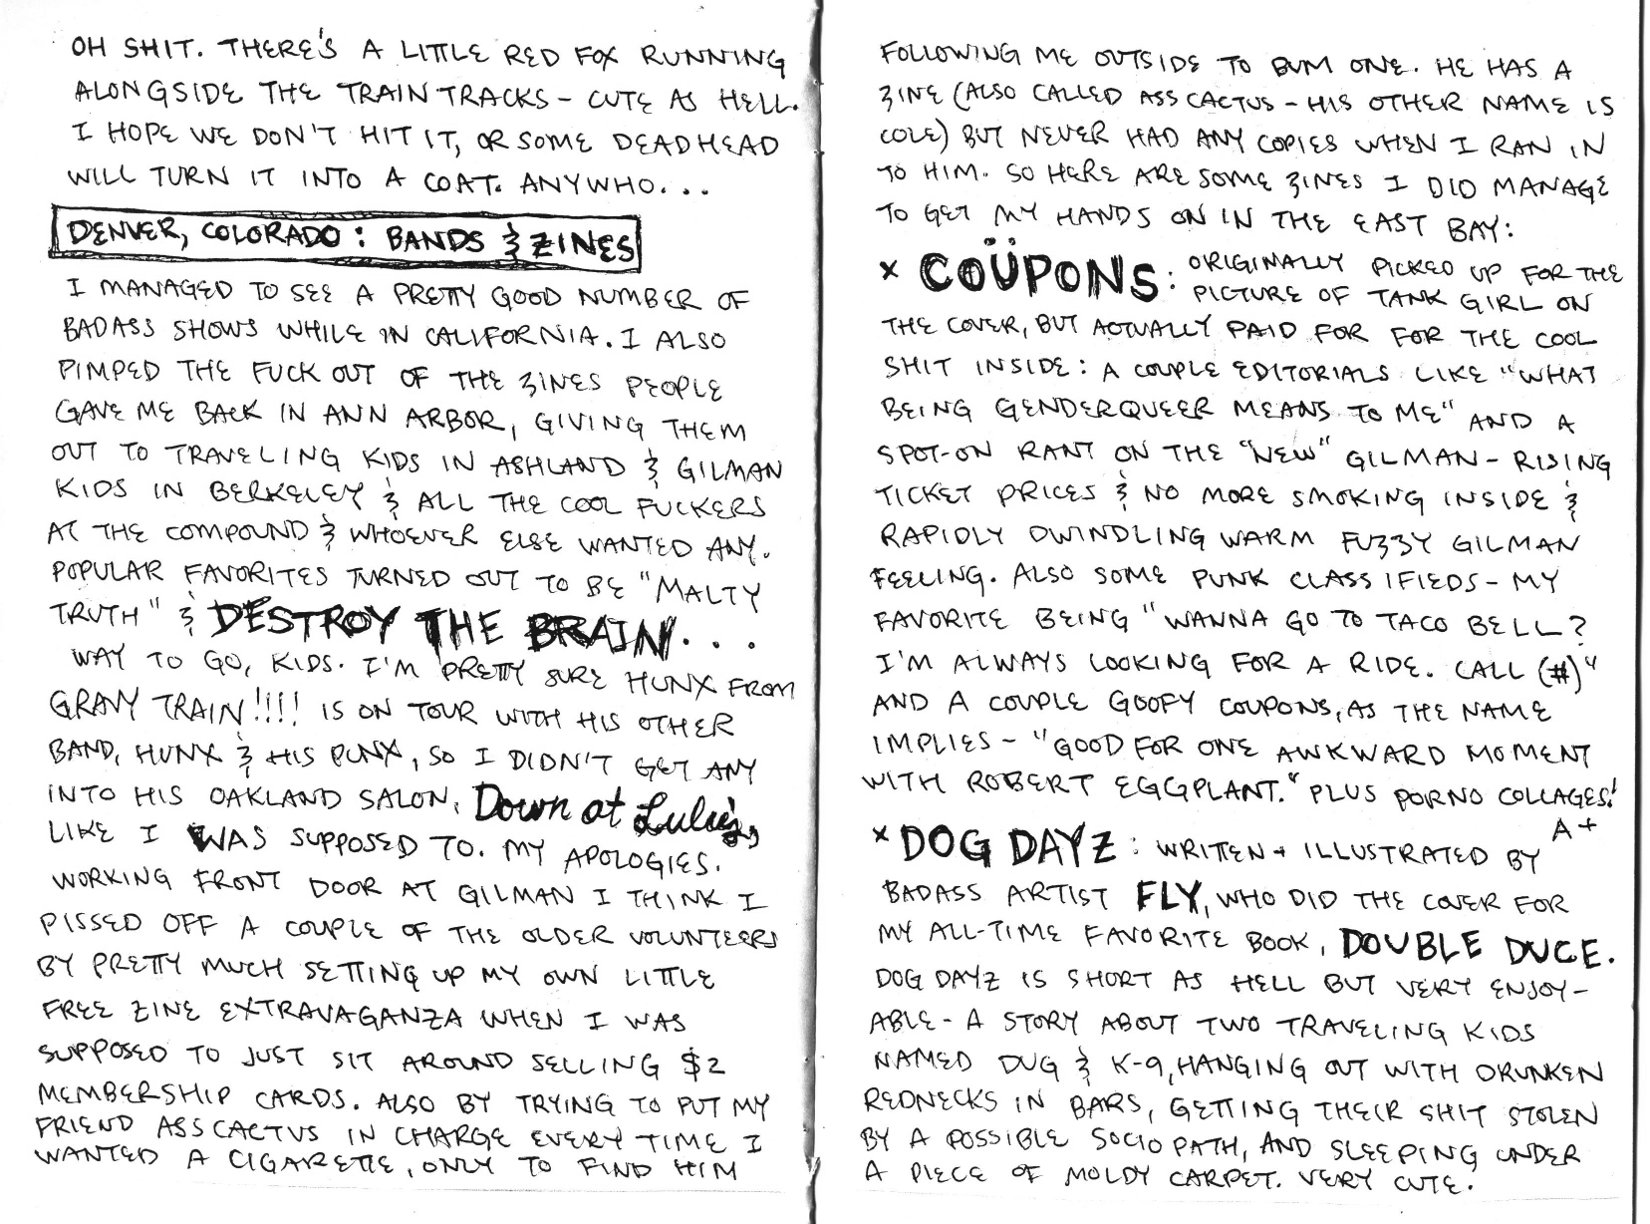 OH SHIT. THERE'S A LITTLE RED FOX RUNNING
ALONGSIDE THE TRAIN TRACKS – CUTE AS HELL.
I HOPE WE DON'T HIT IT, OR SOME DEADHEAD
WILL TURN IT INTO A COAT. ANYWHO...
DENVER, COLORADO: BANDS & ZINES
I MANAGED TO SEE A PRETTY GOOD NUMBER OF
BADASS SHOWS WHILE IN CALIFORNIA. I ALSO
PIMPED THE FUCK OUT OF THE ZINES PEOPLE
GAVE ME BACK IN ANN ARBOR, GIVING THEM
OUT TO TRAVELING KIDS IN ASHLAND & GILMAN
KIDS IN BERKELEY & ALL THE COOL FUCKERS
AT THE COMPOUND & WHOEVER ELSE WANTED ANY.
POPULAR FAVORITES TURNED OUT TO BE "MALTY
TRUTH" & DESTROY THE BRAIN...
WAY TO GO, KIDS. I'M PRETTY SURE HUNX FROM
GRAVY TRAIN!!!! IS ON TOUR WITH HIS OTHER
BAND, HUNX & HIS PUNX, SO I DIDN'T GET ANY
INTO HIS OAKLAND SALON, Down at Lulu's,
LIKE I WAS SUPPOSED TO. MY APOLOGIES.
WORKING FRONT DOOR AT GILMAN I THINK I
PISSED OFF A COUPLE OF THE OLDER VOLUNTEERS
BY PRETTY MUCH SETTING UP MY OWN LITTLE
FREE ZINE EXTRAVAGANZA WHEN I WAS
SUPPOSED TO JUST SIT AROUND SELLING $2
MEMBERSHIP CARDS. ALSO BY TRYING TO PUT MY
FRIEND ASSCACTUS IN CHARGE EVERY TIME I
WANTED A CIGARETTE, ONLY TO FIND HIM
FOLLOWING ME OUTSIDE TO BUM ONE. HE HAS A
ZINE (ALSO CALLED ASS CACTUS – HIS OTHER NAME IS
COLE) BUT NEVER HAD ANY COPIES WHEN I RAN IN
TO HIM. SO HERE ARE SOME ZINES I DID MANAGE
TO GET MY HANDS ON IN THE EAST BAY:
x COÜPONS: ORIGINALLY PICKED UP FOR THE
PICTURE OF TANK GIRL ON
THE COVER, BUT ACTUALLY PAID FOR FOR THE COOL
SHIT INSIDE: A COUPLE EDITORIALS LIKE "WHAT
BEING GENDERQUEER MEANS TO ME" AND A
SPOT-ON RANT ON THE "NEW" GILMAN – RISING
TICKET PRICES & NO MORE SMOKING INSIDE &
RAPIDLY DWINDLING WARM FUZZY GILMAN
FEELING. ALSO SOME PUNK CLASSIFIEDS – MY
FAVORITE BEING "WANNA GO TO TACO BELL?
I'M ALWAYS LOOKING FOR A RIDE. CALL (#)"
AND A COUPLE GOOFY COUPONS, AS THE NAME
IMPLIES – "GOOD FOR ONE AWKWARD MOMENT
WITH ROBERT EGGPLANT." PLUS PORNO COLLAGES!
A+
x DOG DAYZ: WRITTEN + ILLUSTRATED BY
BADASS ARTIST FLY, WHO DID THE COVER FOR
MY ALL-TIME FAVORITE BOOK, DOUBLE DUCE.
DOG DAYZ IS SHORT AS HELL BUT VERY ENJOY-
ABLE – A STORY ABOUT TWO TRAVELING KIDS
NAMED DUG & K-9, HANGING OUT WITH DRUNKEN
REDNECKS IN BARS, GETTING THEIR SHIT STOLEN
BY A POSSIBLE SOCIOPATH, AND SLEEPING UNDER
A PIECE OF MOLDY CARPET. VERY CUTE.